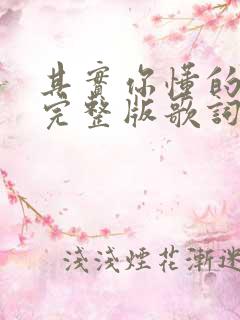 其實你懂的
完整版歌詞
淺淺煙花漸迷